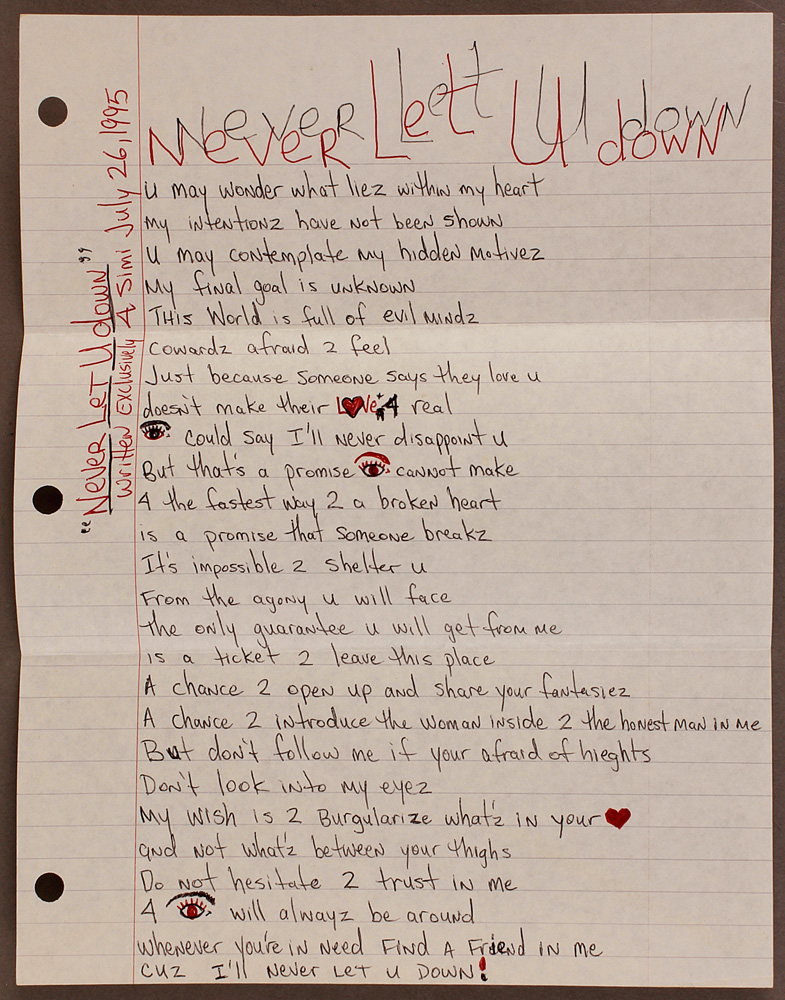 Never Let U down
U may wonder what liez within my heart
my intentionz have not been shown
U may contemplate my hidden motivez
My final goal is unknown
This World is full of evil mindz
Cowardz afraid 2 feel
Just because someone says they love u
doesn't make their Love 4 real
👁 could say I'll never disappoint u
But that's a promise 👁 cannot make
4 the fastest way 2 a broken heart
is a promise that someone breakz
It's impossible 2 shelter u
From the agony u will face
the only guarantee u will get from me
is a ticket 2 leave this place
A chance 2 open up and share your fantasiez
A chance 2 introduce the woman inside 2 the honest man in me
But don't follow me if your afraid of hieghts
Don't look into my eyez
My wish is 2 Burgularize what'z in your ♥
and not what'z between your thighs
Do not hesitate 2 trust in me
4 👁 will alwayz be around
whenever you're in need Find A Friend in me
cuz I'll never let u down!
"Never Let U down"
Written Exclusively 4 Simi July 26, 1995